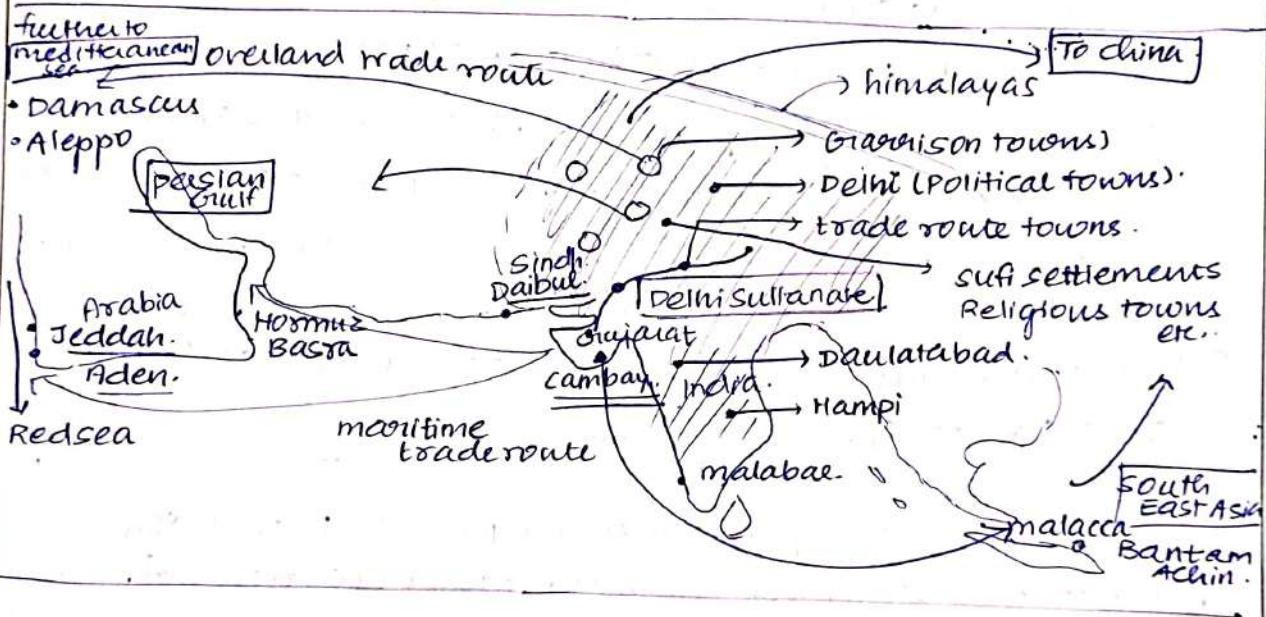 further to
mediterranean
sea
overland trade route
To China
himalayas
• Damascus
• Aleppo
Garrison towns)
persian
Gulf
Delhi (Political towns).
trade route towns.
Sindh
Daibul.
Delhi Sultanate
sufi settlements
Religious towns
etc..
Arabia
Jeddah.
Hormuz
Basra
Gujarat
Daulatabad.
Aden.
Cambay.
India.
Hampi
Redsea
maritime
trade route
malabar.
South
East Asia
malacca
Bantam
Achin.